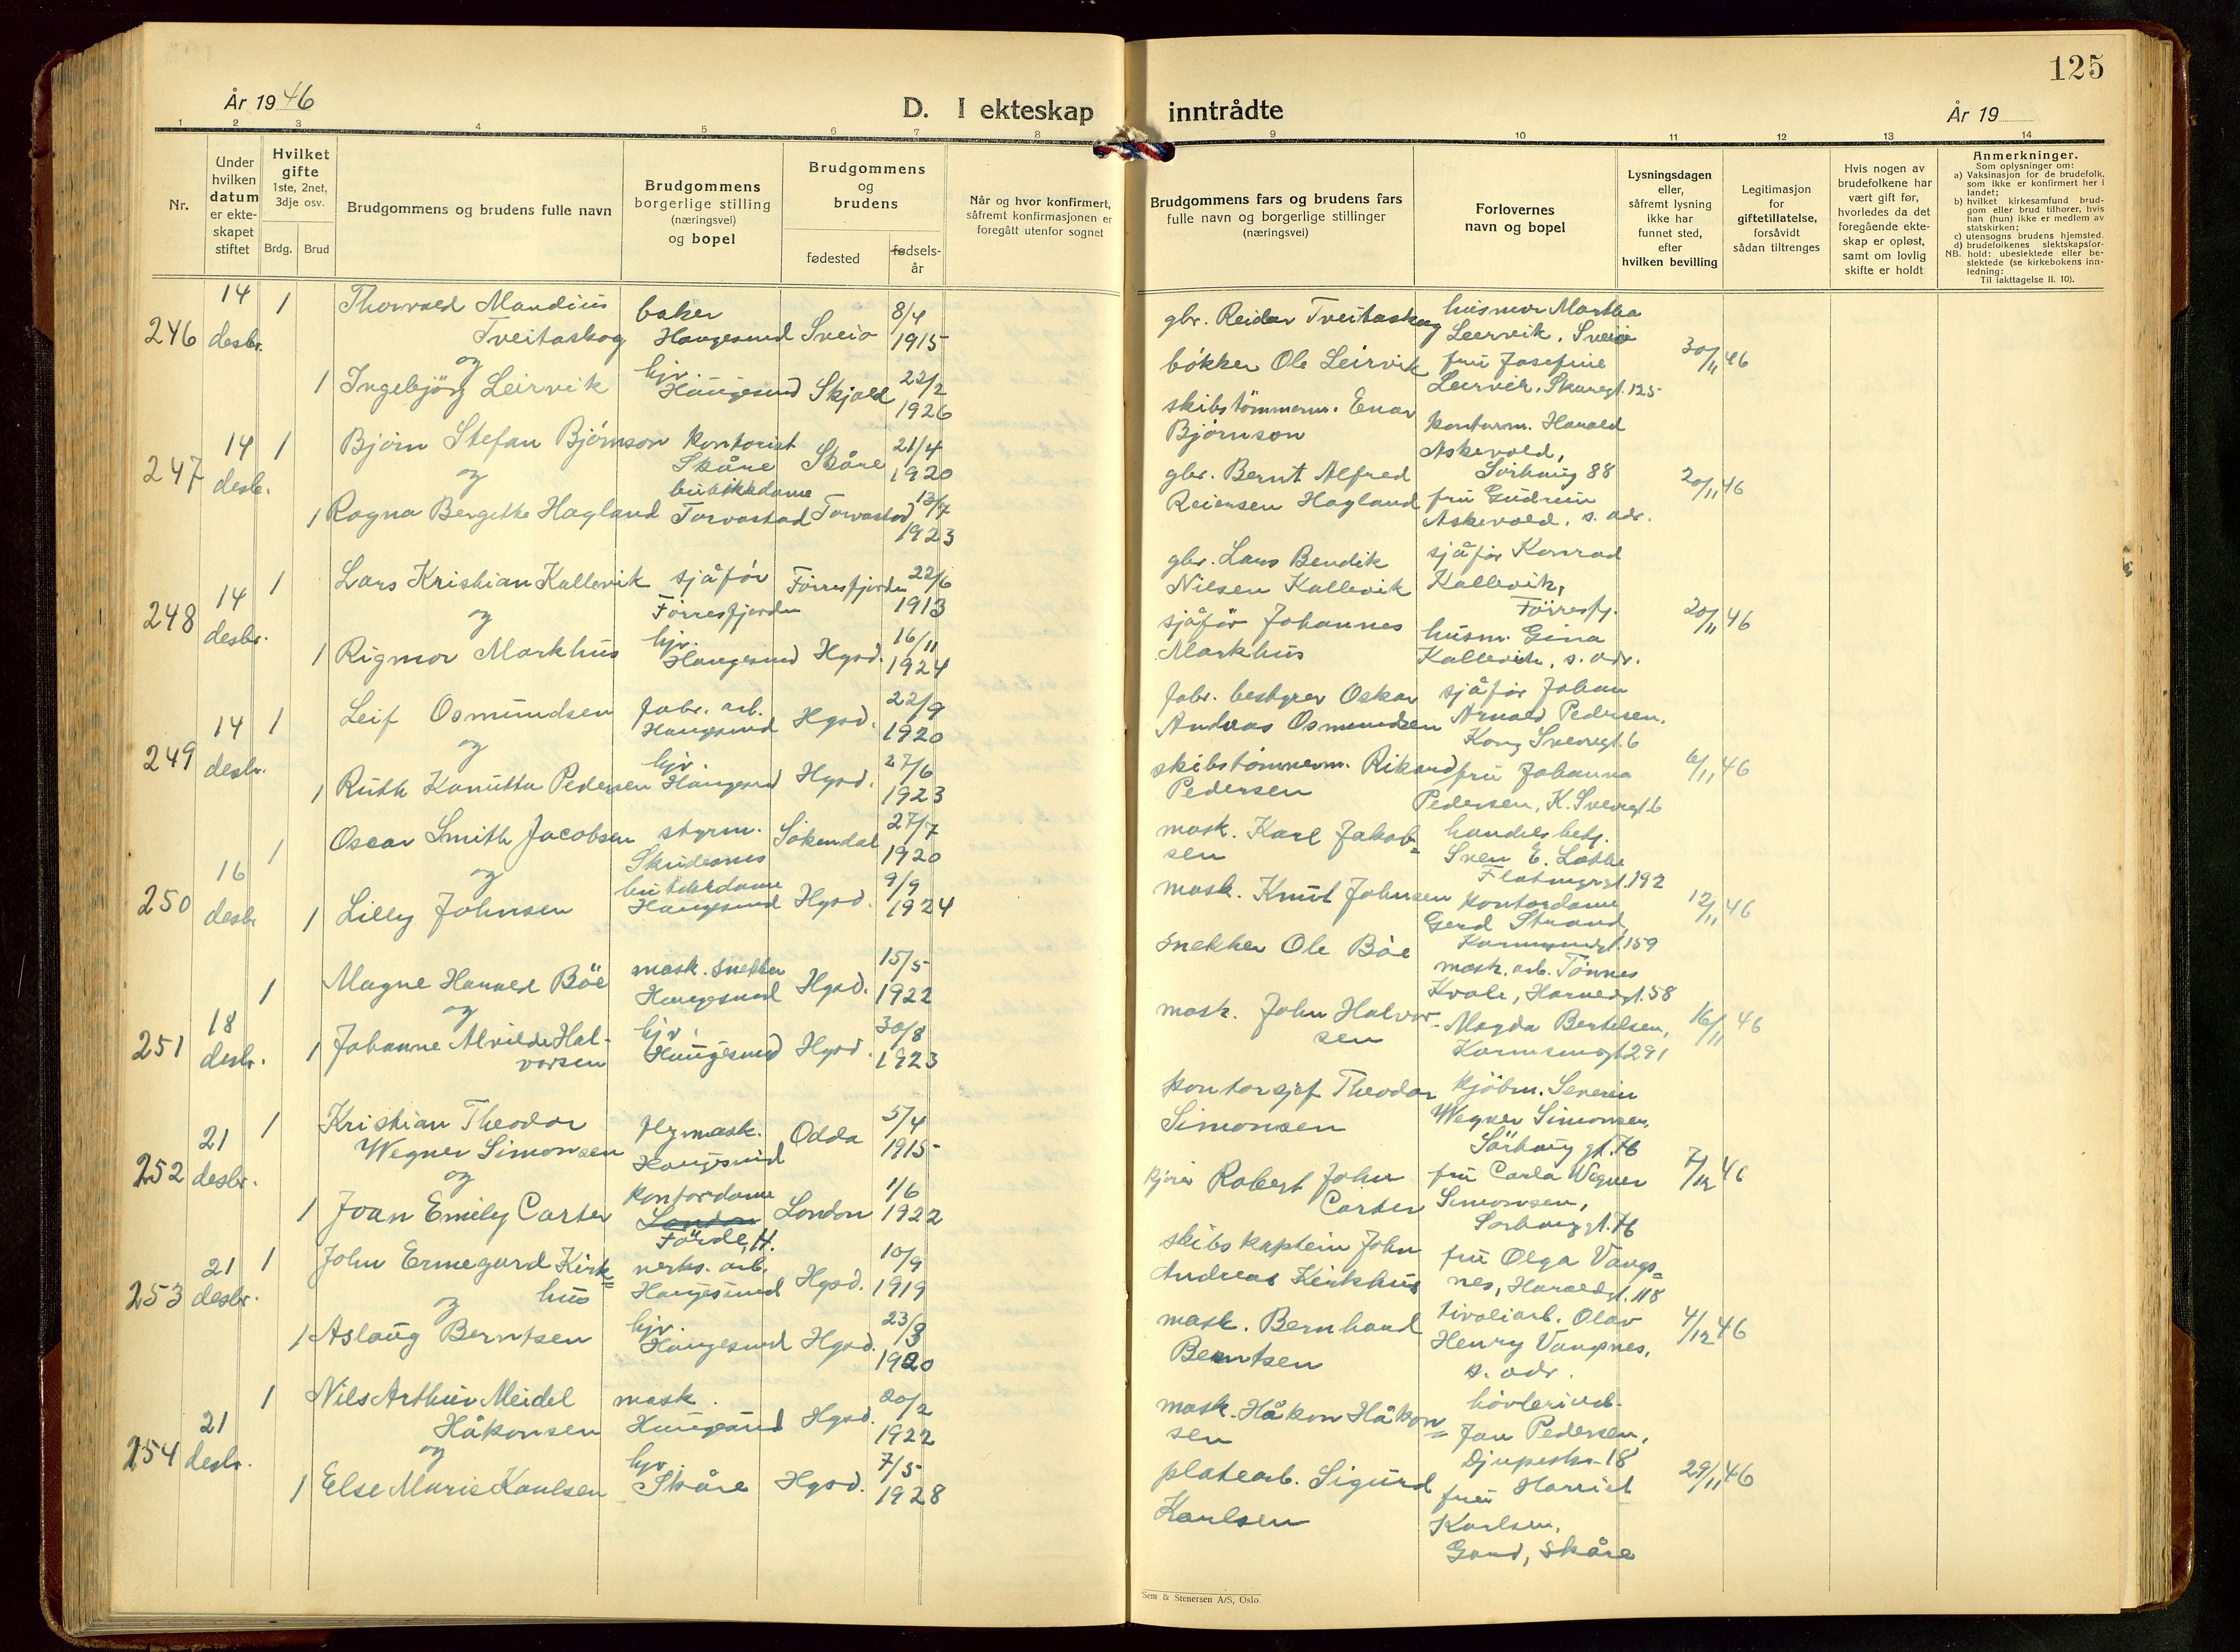 125
År 1946
D. I ekteskap inntrådte
År 19
1 2 3 4 5 6 7 8 9 10 11 12 13 14
Nr.
Under
hvilken
datum
er ekte-
skapet
stiftet
Hvilket
gifte
1ste, 2net,
3dje osv.
Brdg. Brud
Brudgommens og brudens fulle navn
Brudgommens
borgerlige stilling
(næringsvei)
og bopel
Brudgommens
og
brudens
fødested
fødsels-
år
Når og hvor konfirmert,
såfremt konfirmasjonen er
foregått utenfor sognet
Brudgommens fars og brudens fars
fulle navn og borgerlige stillinger
(næringsvei)
Forlovernes
navn og bopel
Lysningsdagen
eller,
såfremt lysning
ikke har
funnet sted,
efter
hvilken bevilling
Legitimasjon
for
giftetillatelse,
forsåvidt
sådan tiltrenges
Hvis nogen av
brudefolkene har
vært gift før,
hvorledes da det
foregående ekte-
skap er opløst,
samt om lovlig
skifte er holdt
Anmerkninger.
Som oplysninger om:
a) Vaksinasjon for de brudefolk,
som ikke er konfirmert her i
landet;
b) hvilket kirkesamfund brud-
gom eller brud tilhører, hvis
han (hun) ikke er medlem av
statskirken;
c) utensogns brudens hjemsted.
d) brudefolkenes slektskapsfor-
NB. hold: ubeslektede eller be-
slektede (se kirkebokens inn-
ledning:
Til iakttagelse II. 10).
246
14
desbr.
1
Thorvald Mandius
Tveitaskog
og
1 Ingebjörg Leirvik
baker
Haugesund Sveio 8/4
1915
hjv.
Haugesund Skjold 22/2
1926
gbr. Reidar Tveitaskog
bökker Ole Leirvik
husmor Martha
Leervik, Sveio
fru Josefine
Leirvik, Skaregt. 125
30/11 46
247
14
desb.
1
Björn Stefan Björnson
og
1 Ragna Bergitte Hagland
kontorist
Skåre Skåre 21/4
1920
butikkdame
Torvastad Torvastad 13/7
1923
skibstömmerm. Enar
Björnson
gbr. Bernt Alfred
Reiersen Hagland
kontorm. Harald
Askevold,
Sörhaug 88
fru Gudrun
Askevold, s. adr.
20/11 46
248
14
desbr.
1
Lars Kristian Kallevik
og
1 Rigmor Markhus
sjåför
Förresfjorden Förresfjorden 22/6
1913
hjv.
Haugesund Hgsd. 16/11
1924
gbr. Lars Bendik
Nilsen Kallevik
sjåför Johannes
Markhus
sjåför Konrad
Kallevik,
Förresfj.
husm. Gina
Kallevik, s. adr.
20/11 46
249
14
desbr.
1
Leif Osmundsen
og
1 Ruth Kanutta Pedersen
fabr. arb.
Haugesund Hgsd. 22/9
1920
hjv.
Haugesund Hgsd. 27/6
1923
fabr. bestyrer Oskar
Andreas Osmundsen
skibstömmerm. Rikard
Pedersen
sjåför Johan
Arnold Pedersen,
Kong Sveregt. 6
fru Johanna
Pedersen, K. Sveregt. 6
6/11 46
250
16
desbr
1
Oscar Smith Jacobsen
og
1 Lilly Johnsen
styrm.
Skudesnes Sokendal 27/7
1920
butikkdame
Haugesund Hgsd. 9/9
1924
mask. Karl Jakob-
sen
mask. Knut Johnsen
handels betj.
Sven E. Lothe
Flotmyrgt. 192
kontordame
Gerd Strand,
Karmsundgt. 159
12/11 46
251
18
desbr.
1
Magne Harald Böe
og
1 Johanne Alvilde Hal-
vorsen
mask. snekker
Haugesund Hgsd. 15/5
1922
hjv.
Haugesund Hgsd. 30/8
1923
snekker Ole Böe
mask. John Halvor-
sen
mask. arb. Tönnes
Kvale, Haraldgt. 58
Magda Bertelsen,
Karmsundgt. 291
16/11 46
252
21
desbr.
1
Kristian Theodor
Wegner Simonsen
og
1 Joan Emily Carter
flymask.
Haugesund Odda 5/4
1915
kontordame
London
Förde, H.
London 1/6
1922
kontorsjef Theodor
Simonsen
Robert John
Carter
kjöbm. Severin
Wegner Simonsen,
Sörhauggt.
fru Carla Wegner
Simonsen,
Sörhauggt.
7/12 46
253
21
desbr.
1
John Ermegard Kirk=
hus
og
1 Aslaug Berntsen
verks. arb.
Haugesund Hgsd. 10/9
1919
hjv.
Haugesund Hgsd. 23/3
1920
skibskaptein John
Andreas Kirkhus
mask. Bernhard
Berntsen
fru Olga Vangs=
nes, Haraldgt. 118
tivoliarb. Olav
Henry Vangsnes,
s. adr.
4/12 46
254
21
desbr.
1
Nils Arthur Meidel
Håkonsen
og
1 Else Marie Karlsen
mask.
Haugesund Hgsd. 20/2
1922
hjv.
Skåre Hgsd. 7/5
1928
mask. Håkon Håkon=
sen
platearb. Sigurd
Karlsen
hövleriarb.
Jan Pedersen,
Djupesk. 18
fru Harriet
Karlsen,
Gard, Skåre
29/11 46
Sem & Stenersen A/S, Oslo.